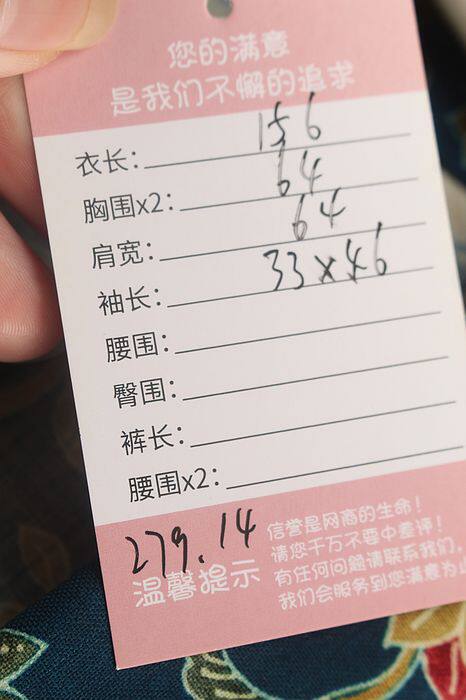 您的满意
是我们不懈的追求
衣长: 156
胸围x2: 64
肩宽: 64
袖长: 33×46
腰围:
臀围:
裤长:
腰围x2:
279.14
温馨提示
信誉是网商的生命!
请您千万不要中差评!
有任何问题请联系我们,
我们会服务到您满意为止